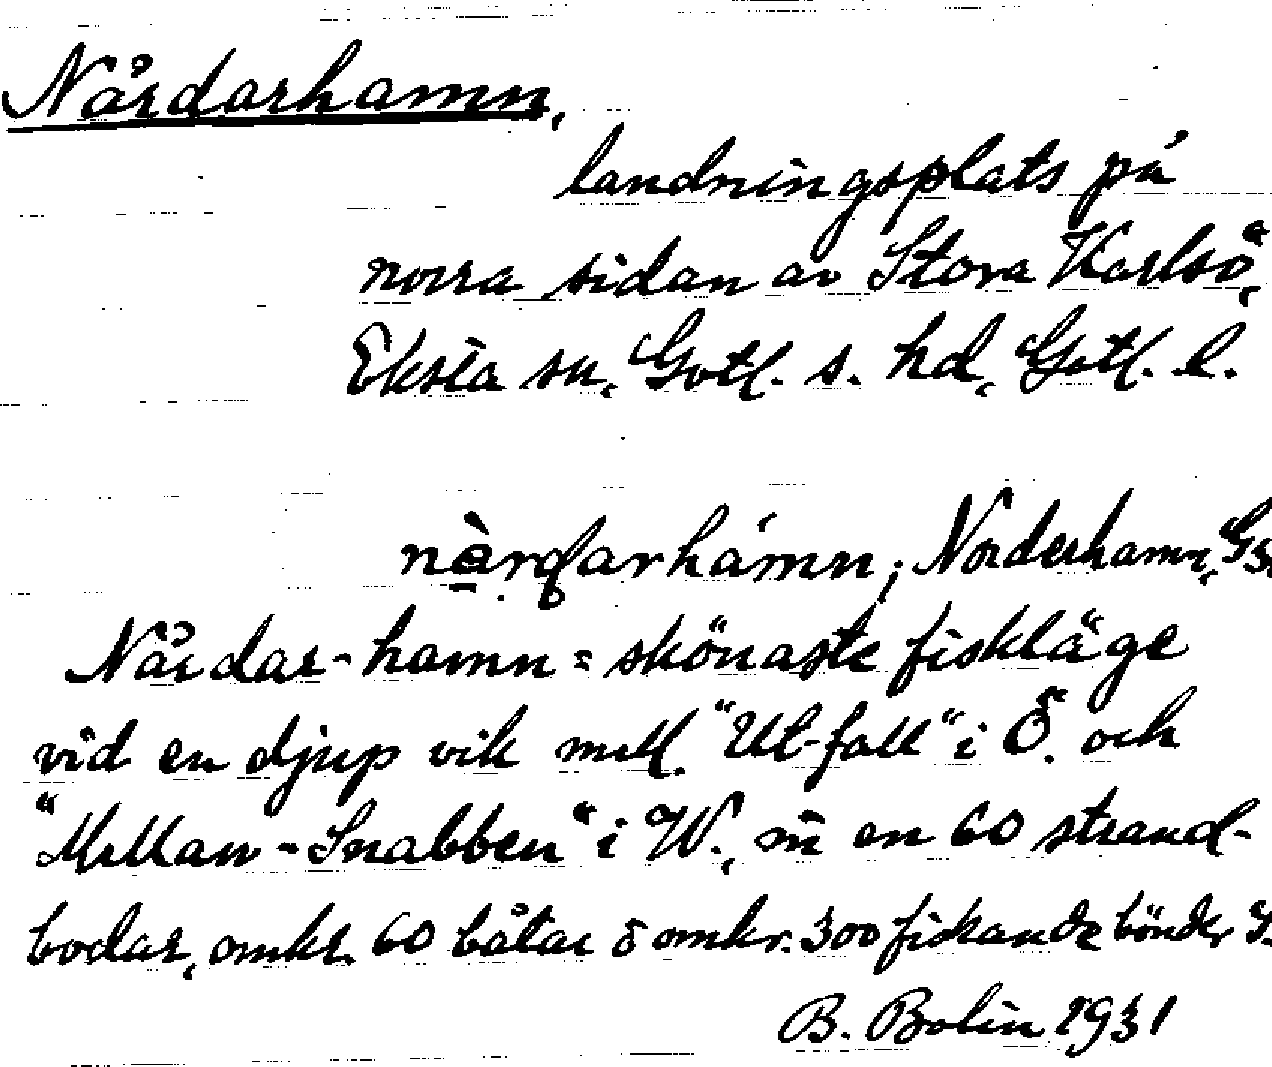 Nårdarhamn,
landningsplats på
norra sidan av Stora Karlsö,
Eksta sn, Gotl. s. hd, Gotl. l.
Norderhamn, Gs.
Nårdar-hamn = skönaste fiskläge
vid en djup vik mell. "Ut-fall" i Ö. och
"Mellan-Snabben" i W., m en 60 strand-
bodar, omkr. 60 båtar o omkr. 300 fiskande bönder
B. Bolin 1931